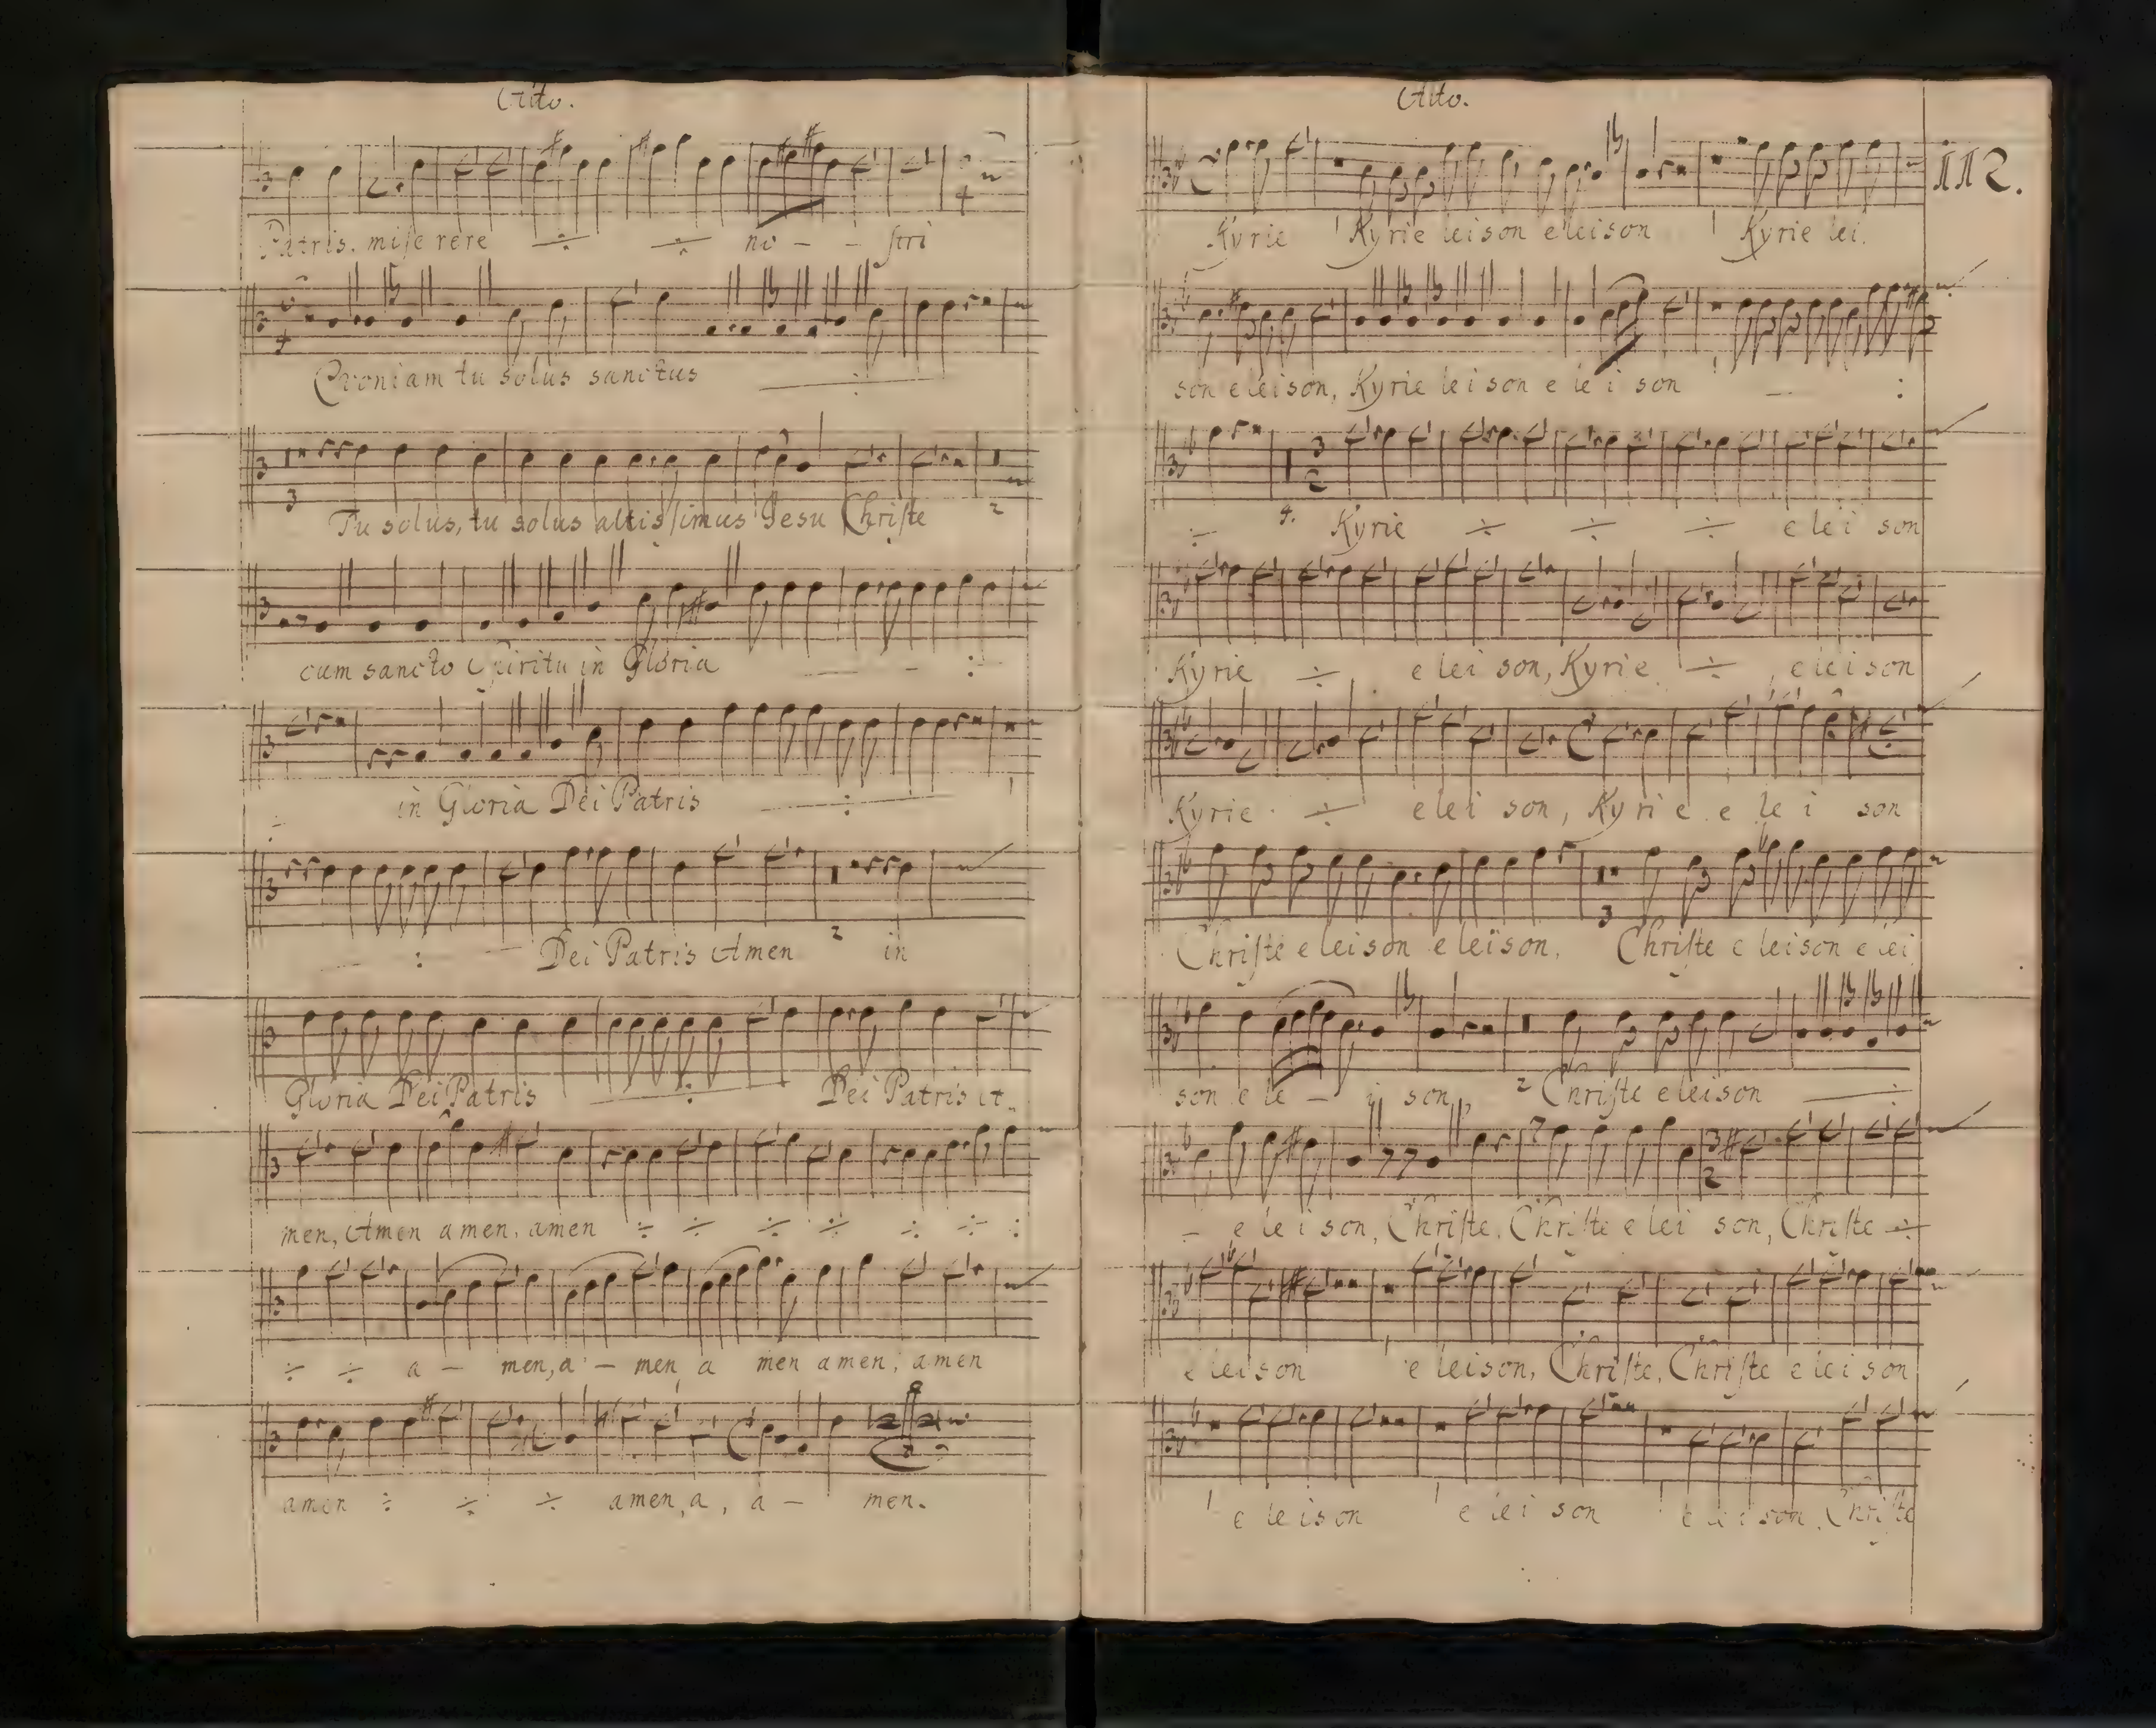 Alto.
Patris. miserere ÷ ÷ no - - stri
Qvoniam tu solus sanctus :
3 2
Tu solus, tu solus altissimus Jesu Christe
cum sancto Spiritu in Gloria - :
in Gloria Dei Patris :
: Dei Patris Amen 2 in
Gloria Dei Patris : Dei Patris A-
men, Amen amen, amen ÷ ÷ ÷ ÷ ÷ ÷ :
÷ ÷ a - men, a - men a men amen, amen
amen ÷ ÷ ÷ amen, a, a - men.
Alto.
112.
Kyrie Kyrie leison eleison Kyrie lei
son eleison, Kyrie leison e le i son - :
÷ 4. Kyrie ÷ ÷ ÷ e lei son
Kyrie ÷ e lei son, Kyrie ÷ , eleison
Kyrie ÷ e lei son, Kyri e e le i son
3
Christe eleison eleison, Christe e leison e lei
son e le - i son, 2 Christe eleison :
- e le i son, Christe, Christe e lei son, Christe ÷
e lei son e leison, Christe, Christe e lei son
e leison e lei son e lei son, Christe